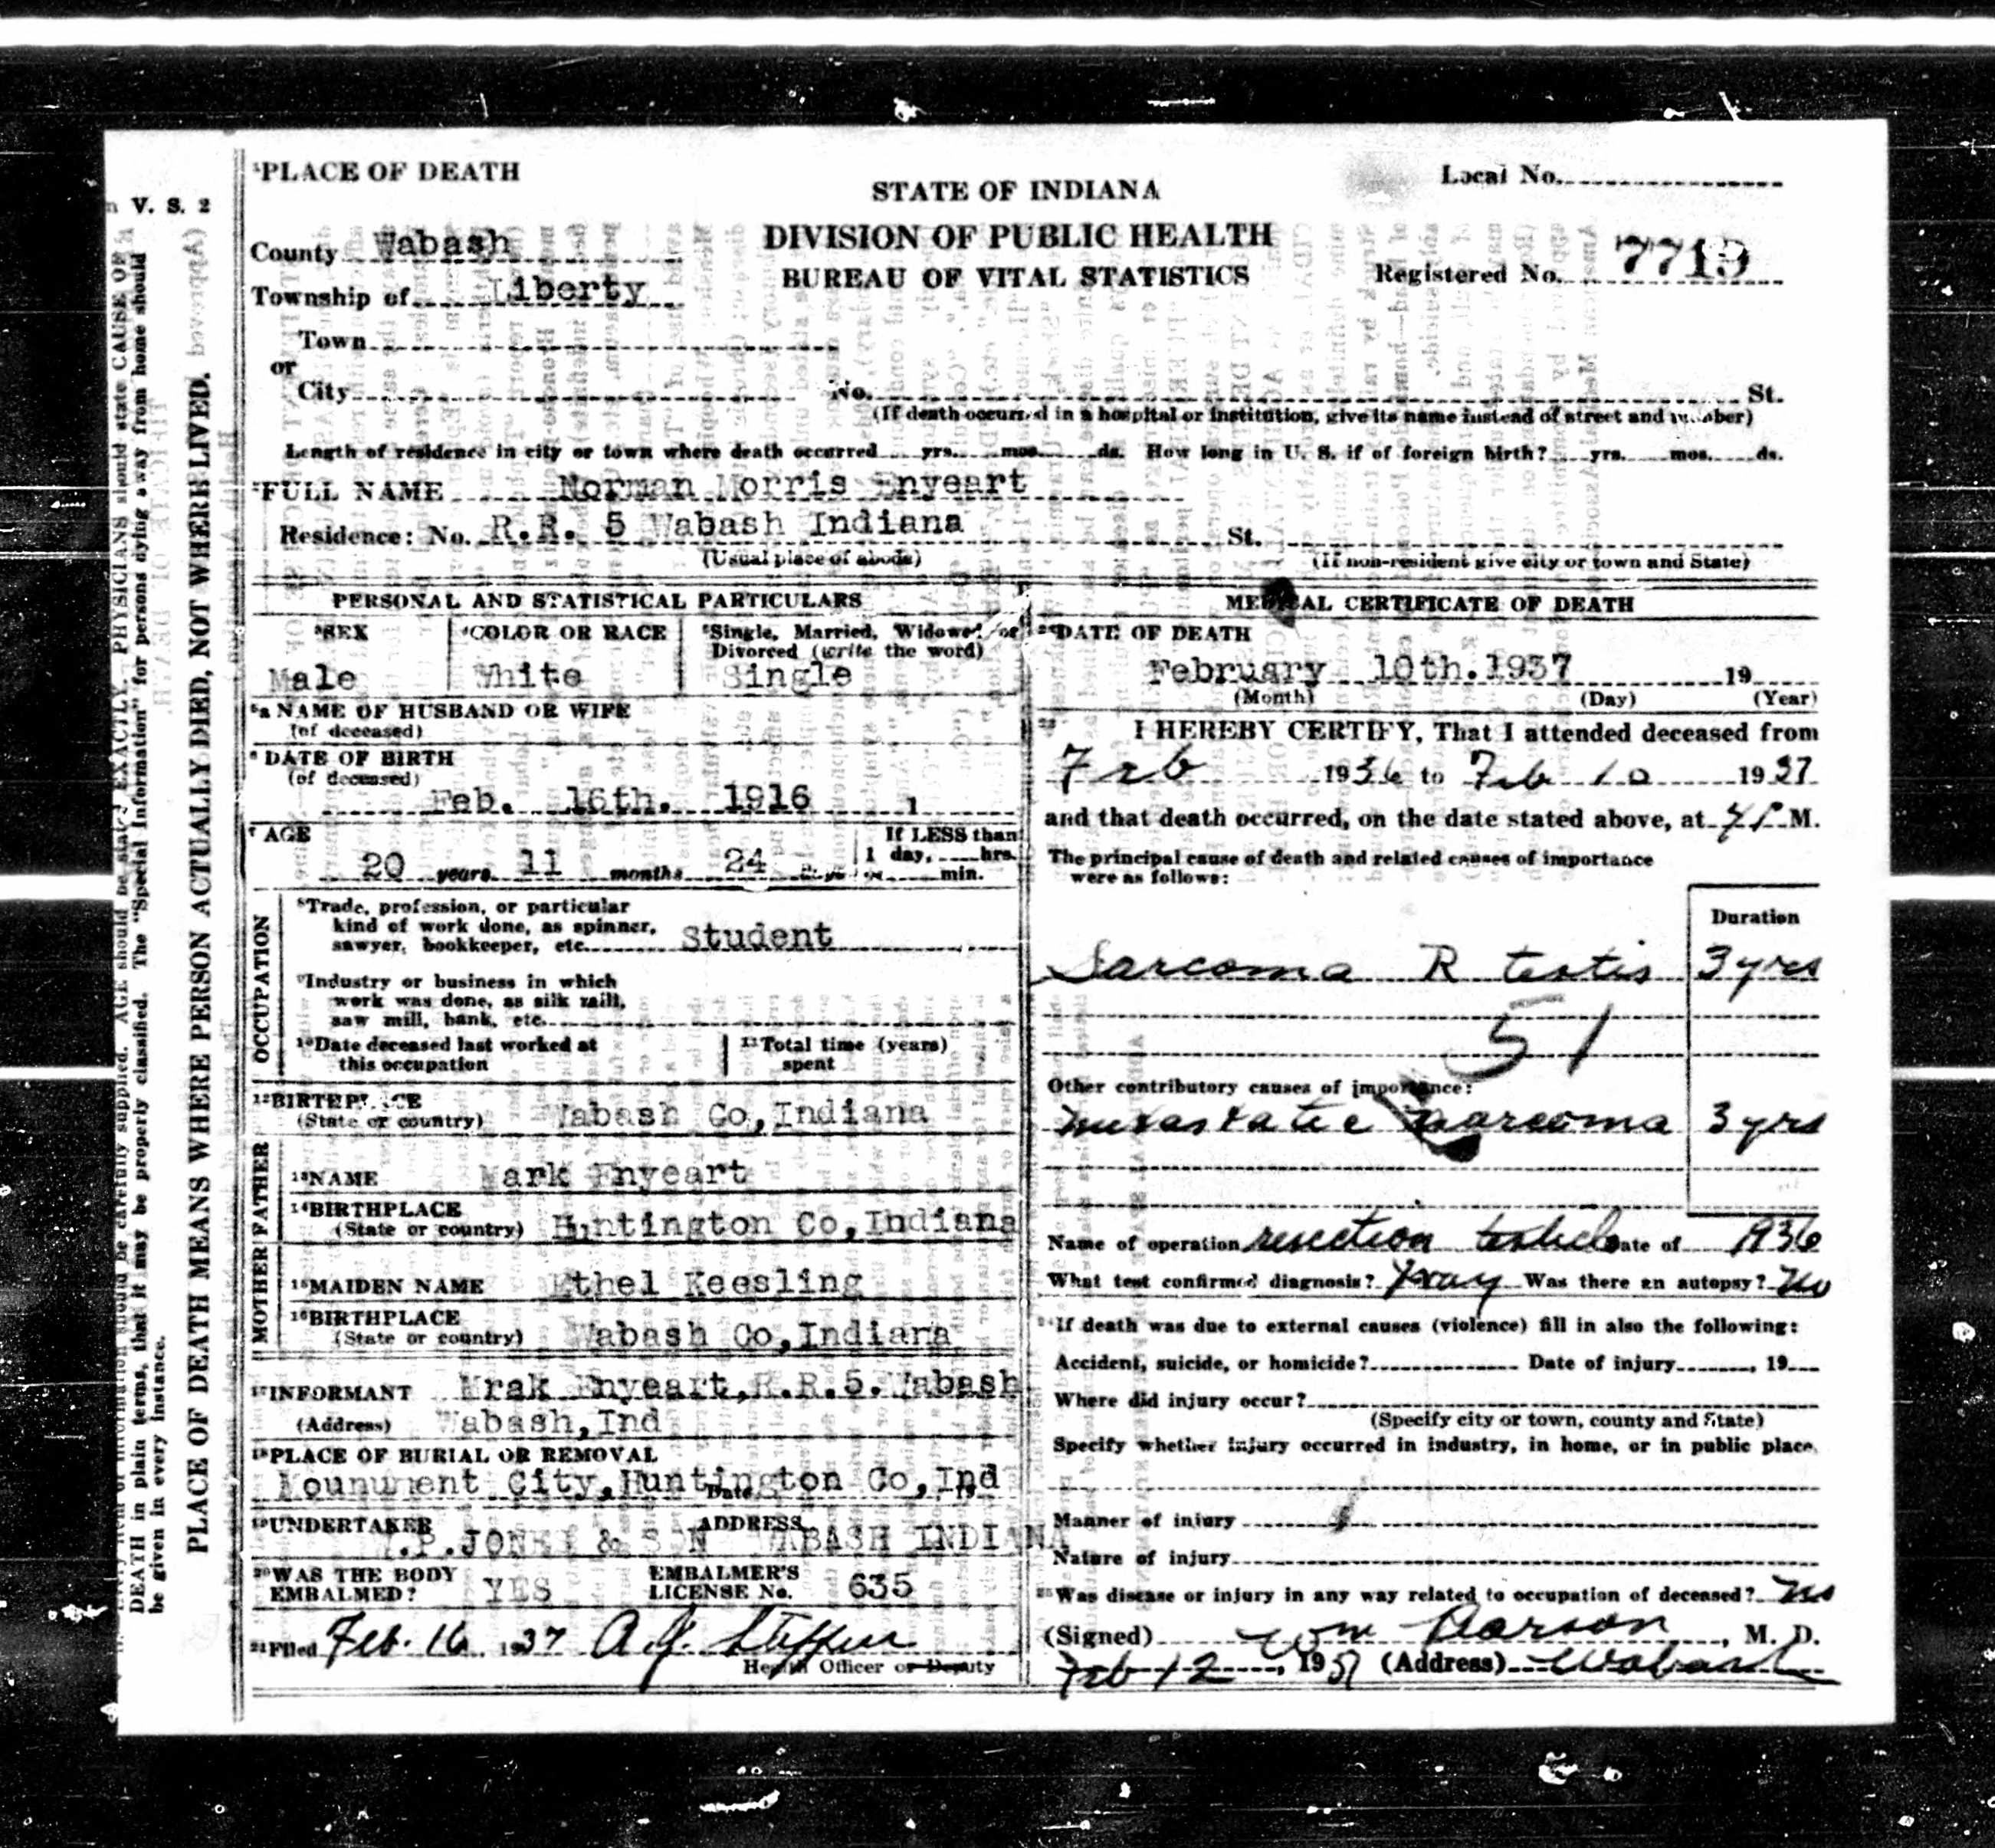 ¹PLACE OF DEATH
STATE OF INDIANA
DIVISION OF PUBLIC HEALTH
BUREAU OF VITAL STATISTICS
Local No.
Registered No. 7719
V. S. 2
County Wabash
Township of Liberty
Town
or
City No. St.
(If death occurred in a hospital or institution, give its name instead of street and number)
Length of residence in city or town where death occurred yrs. mos. ds. How long in U. S. if of foreign birth? yrs. mos. ds.
²FULL NAME Norman Morris Enyeart
Residence: No. R.R. 5 Wabash Indiana St.
(Usual place of abode) (If non-resident give city or town and State)
PERSONAL AND STATISTICAL PARTICULARS
³SEX ⁴COLOR OR RACE ⁵Single, Married, Widowed or
Divorced (write the word)
Male White Single
⁵a NAME OF HUSBAND OR WIFE
(of deceased)
⁶DATE OF BIRTH
(of deceased)
Feb. 16th. 1916
⁷AGE If LESS than
20 years 11 months 24 days 1 day, hrs.
or min.
OCCUPATION
⁸Trade, profession, or particular
kind of work done, as spinner,
sawyer, bookkeeper, etc. Student
⁹Industry or business in which
work was done, as silk mill,
saw mill, bank, etc.
¹⁰Date deceased last worked at ¹¹Total time (years)
this occupation spent
¹²BIRTHPLACE
(State or country) Wabash Co,Indiana
FATHER
¹³NAME Mark Enyeart
¹⁴BIRTHPLACE
(State or country) Huntington Co,Indiana
MOTHER
¹⁵MAIDEN NAME Ethel Keesling
¹⁶BIRTHPLACE
(State or country) Wabash Co,Indiana
¹⁷INFORMANT Mrak Enyeart,R.R.5. Wabash
(Address) Wabash,Ind
¹⁸PLACE OF BURIAL OR REMOVAL
Mounument City,Huntington Co,Ind
Date
¹⁹UNDERTAKER ADDRESS
.P.JONES & SON WABASH INDIANA
²⁰WAS THE BODY EMBALMER'S
EMBALMED? YES LICENSE No. 635
²¹Filed Feb. 16 1937 A.J. Steffen
Health Officer or Deputy
MEDICAL CERTIFICATE OF DEATH
²²DATE OF DEATH
February 10th.1937 19
(Month) (Day) (Year)
²³ I HEREBY CERTIFY, That I attended deceased from
Feb 1936 to Feb 10 1937
and that death occurred, on the date stated above, at M.
The principal cause of death and related causes of importance
were as follows:
Duration
Sarcoma R testis 3 yrs
51
Other contributory causes of importance:
metastatic sarcoma 3 yrs
Name of operation resection testicle Date of 1936
What test confirmed diagnosis? Xray Was there an autopsy? no
²⁴If death was due to external causes (violence) fill in also the following:
Accident, suicide, or homicide? Date of injury , 19
Where did injury occur?
(Specify city or town, county and State)
Specify whether injury occurred in industry, in home, or in public place.
Manner of injury
Nature of injury
²⁵Was disease or injury in any way related to occupation of deceased? no
(Signed) Wm , M. D.
Feb 12 , 1937 (Address) Wabash
DEATH in plain terms, that it may be properly classified. The "Special Information" for persons dying away from home should
be given in every instance.
PLACE OF DEATH MEANS WHERE PERSON ACTUALLY DIED, NOT WHERE LIVED.
should be carefully supplied. AGE should be stated EXACTLY. PHYSICIANS should state CAUSE OF